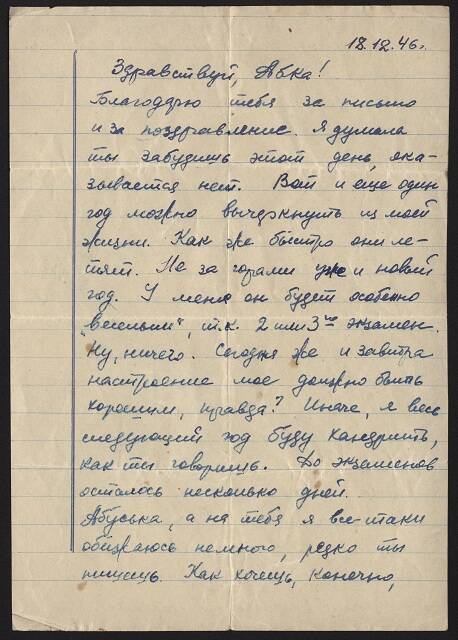 18.12.46г.
Здравствуй, Абка!
Благодарю тебя за письмо
и за поздравление. Я думала
ты забудишь этот день, ока-
зывается нет. Вот и еще один
год можно вычеркнуть из моей
жизни. Как же быстро они ле-
тят. Не за горами уже и новый
год. У меня он будет особенно
„веселым", т.к. 2 или 3го экзамен.
Ну, ничего. Сегодня же и завтра
настроение мое должно быть
хорошим, правда? Иначе, я весь
следующий год буду хандрить,
как ты говоришь. До экзаменов
осталось несколько дней.
Абуська, а на тебя я все таки
обижаюсь немного, редко ты
пишешь. Как хочешь, конечно,